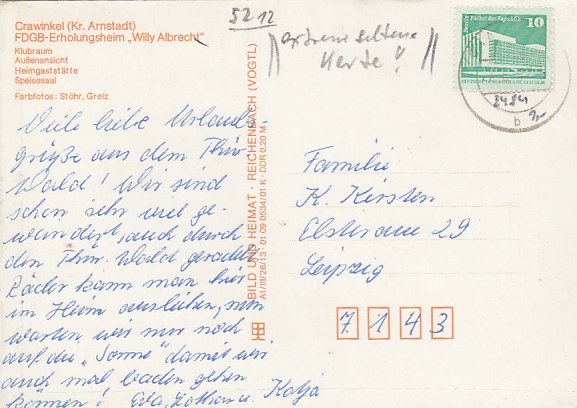 Crawinkel (Kr. Arnstadt)
FDGB-Erholungsheim „Willy Albrecht"
Klubraum
Außenansicht
Heimgaststätte
Speisesaal
Farbfotos: Stöhr, Greiz
5212
extrem seltene
Karte!
Palast der Republik
10
2421
b
2,-
Viele liebe Urlaubs-
grüße aus dem Thür.
Wald! Wir sind
schon sehr viel ge-
wandert, auch durch
den Thür. Wald geradelt.
Räder kann man hier
im Heim ausleihen, nun
warten wir nur noch
auf die „Sonne" damit wir
auch mal baden gehen
können! Eva, Lothar u. Katja
BILD UND HEIMAT · REICHENBACH (VOGTL)
A1/III/26/13 01 09 0534/01 K · DDR 0,20 M
Familie
K. Kirsten
Elsteraue 29
Leipzig
7 1 4 3